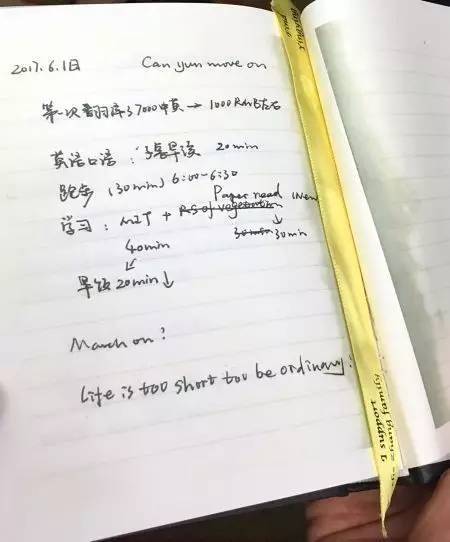 2017.6.1日 Can yun move on
第一次 7000中英 → 1000RMB左右
英语口语: 早读 20min
跑步 (30min) 6:00-6:30
Paper read 1New
学习: MIT + RS of vegetation
40min 30min 30min
早饭 20min ↓
March on!
Life is too short too be ordinary!
I support